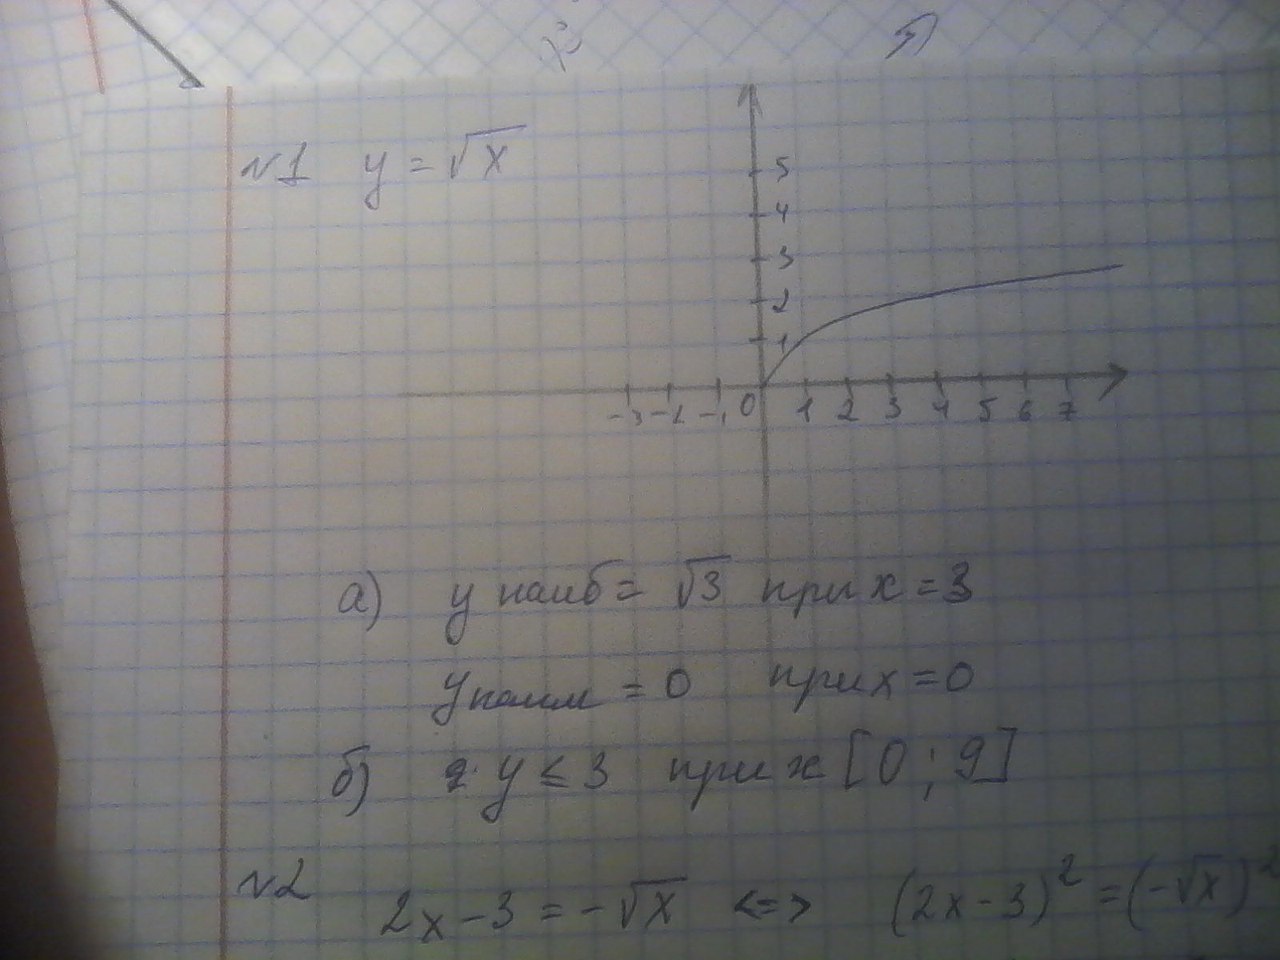 №1 y = √x
5
4
3
2
1
-3 -2 -1 0 1 2 3 4 5 6 7
а) y наиб = √3 при x = 3
y наим = 0 при x = 0
б) y ≤ 3 при x [0 ; 9]
№2 2x - 3 = -√x <=> (2x - 3)² = (-√x)²